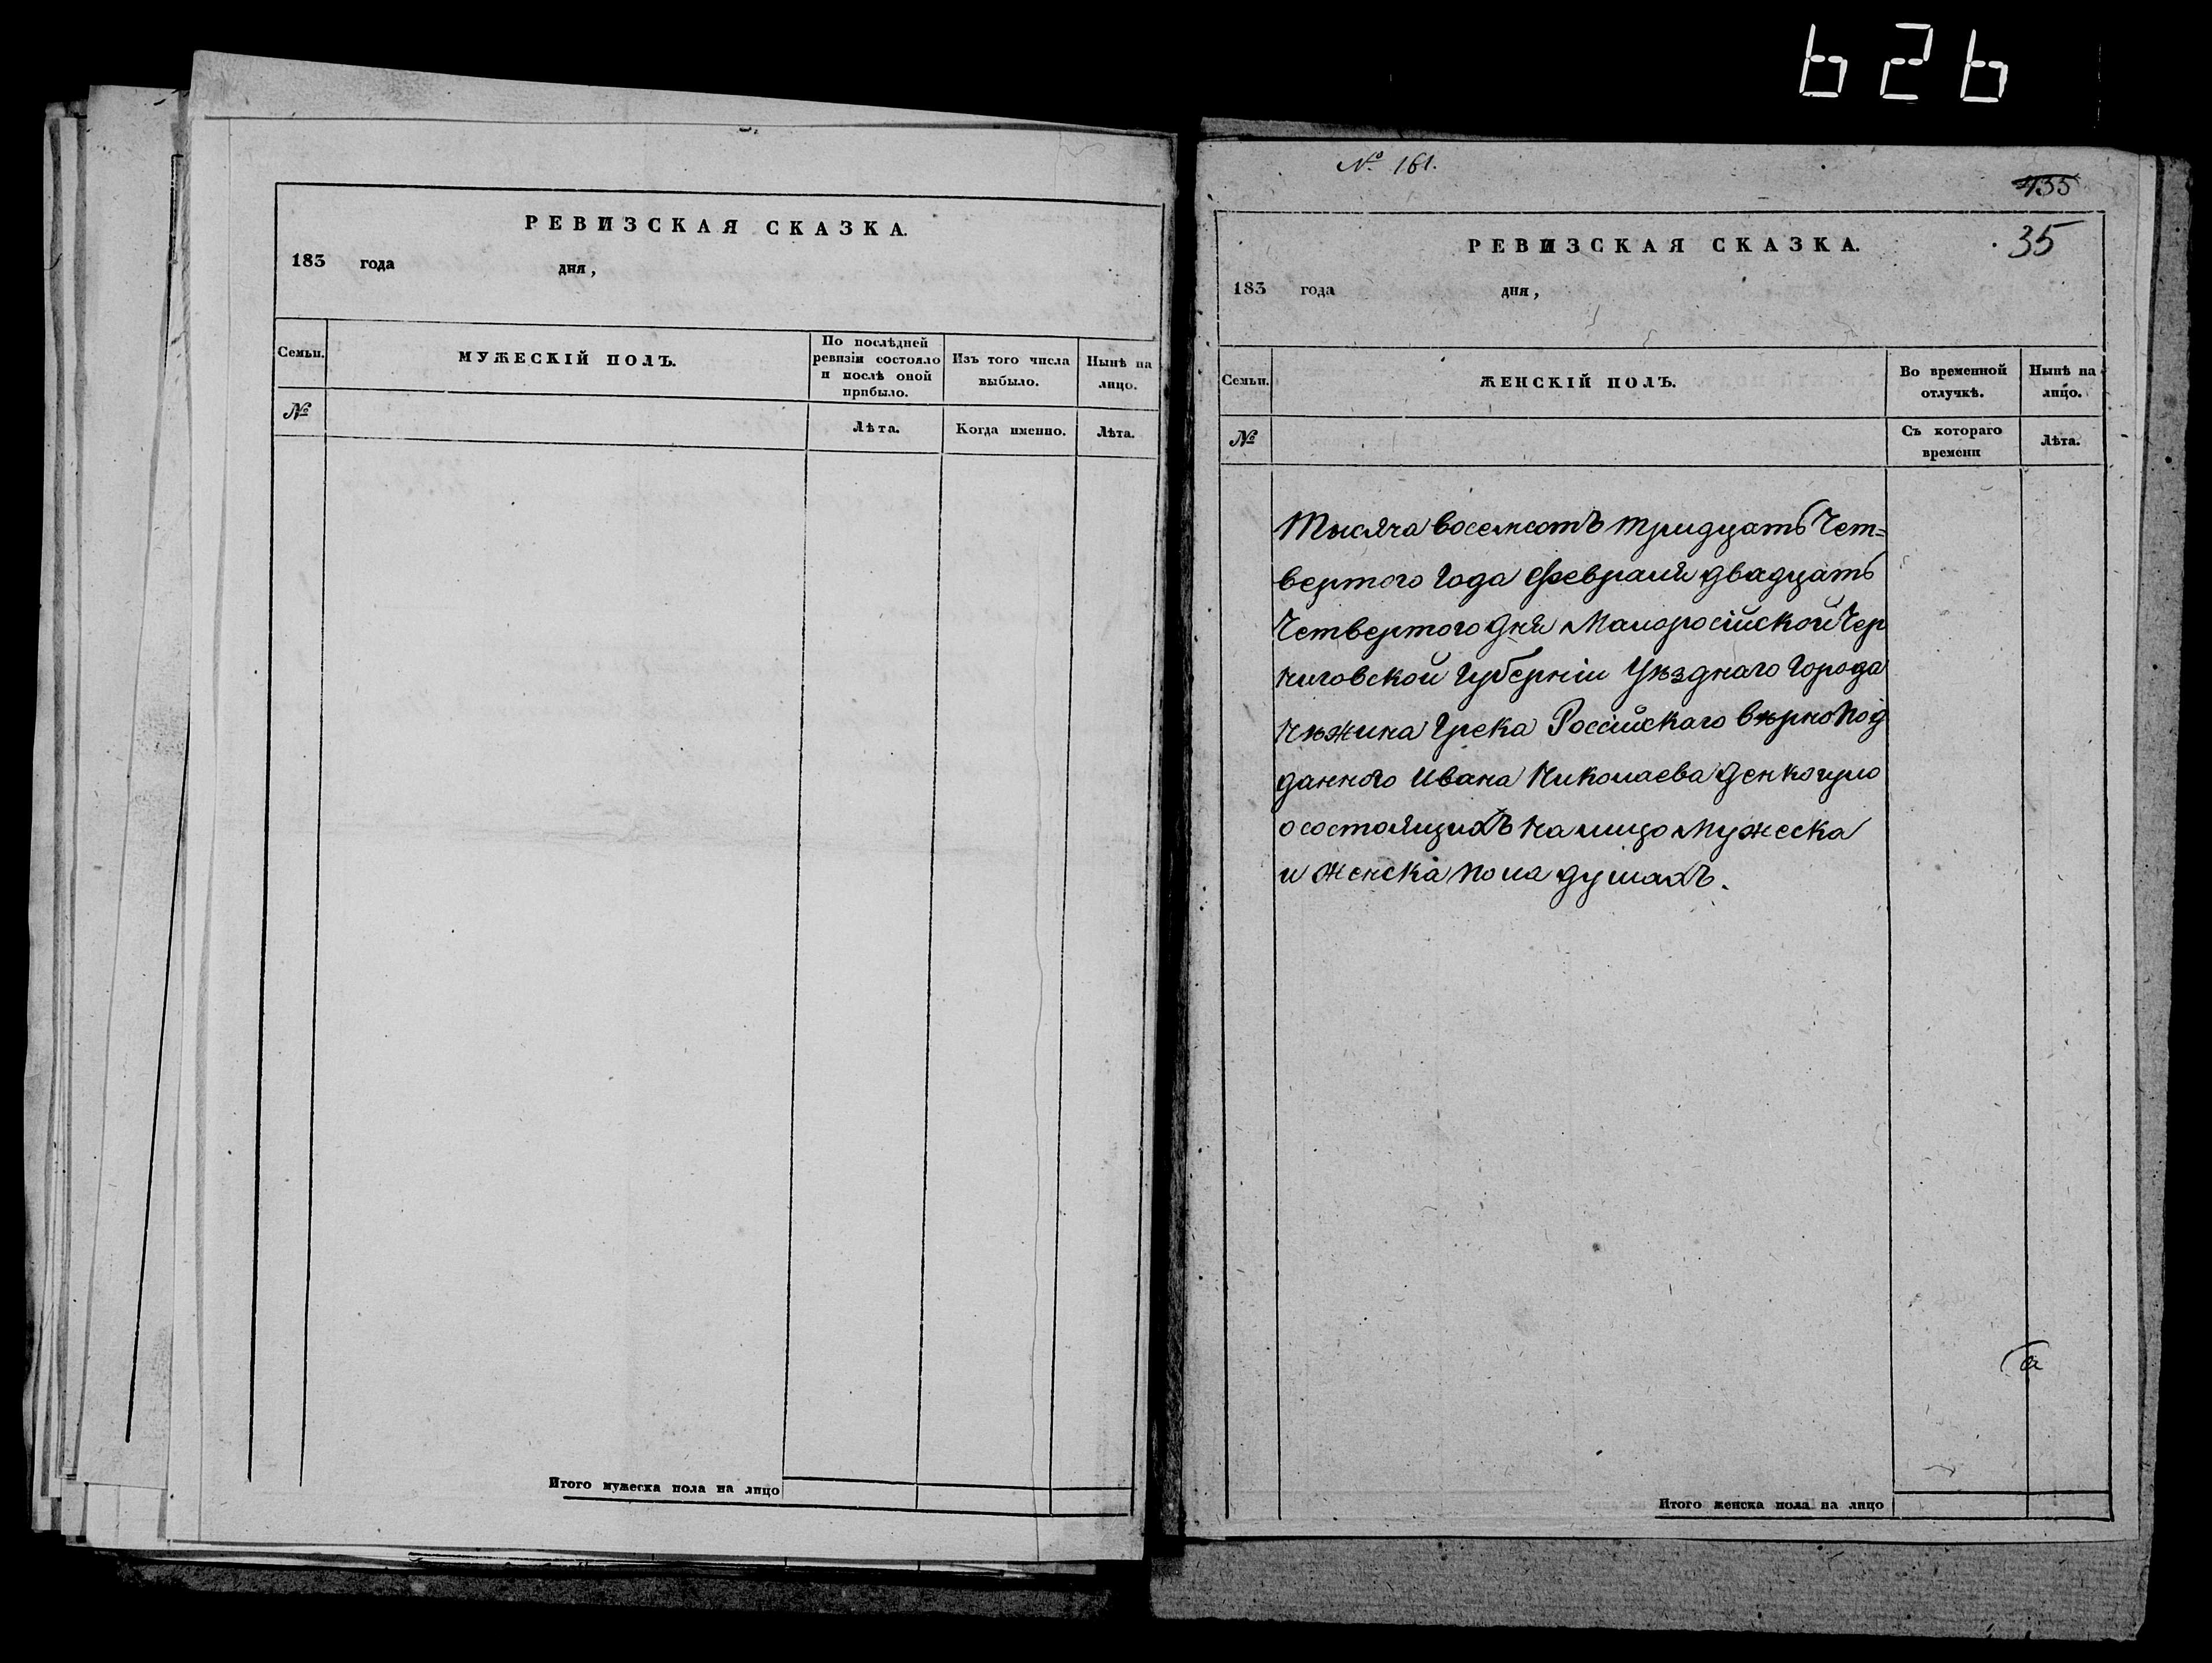 626
РЕВИЗСКАЯ СКАЗКА.
183 года дня,
Семьи.
МУЖЕСКІЙ ПОЛЪ.
По послѣдней
ревизіи состояло
и послѣ оной
прибыло.
Изъ того числа
выбыло.
Нынѣ на
лицо.
№
Лѣта.
Когда именно.
Лѣта.
Итого мужеска пола на лицо
№ 161.
435
35
РЕВИЗСКАЯ СКАЗКА.
183 года дня,
Семьи.
ЖЕНСКІЙ ПОЛЪ.
Во временной
отлучкѣ.
Нынѣ на
лицо.
№
Съ котораго
времени
Лѣта.
Тысяча восемсотъ тридцать Чет=
вертого года Февраля двадцать
Четвертого дня Малоросійской Чер
ниговской Губерніи Уѣзднаго города
Нѣжина Грека Россійскаго вѣрнопод
данного Ивана Николаева
о состоящихъ на лицо Мужеска
и Женска пола душахъ.
Итого женска пола на лицо